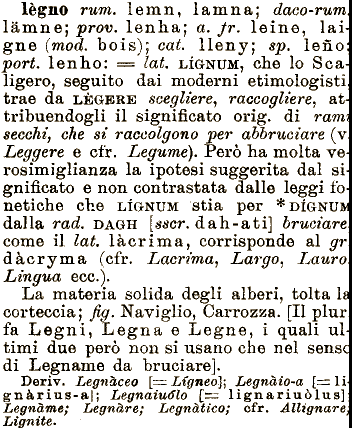 lègno rum. lemn, lamna; daco-rum.
lämne; prov. lenha; a. fr. leine, lai-
gne (mod. bois); cat. lleny; sp. leño:
port. lenho: = lat. LÍGNUM, che lo Sca-
ligero, seguito dai moderni etimologisti,
trae da LÈGERE scegliere, raccogliere, at-
tribuendogli il significato orig. di rami
secchi, che si raccolgono per abbruciare (v.
Leggere e cfr. Legume). Però ha molta ve-
rosimiglianza la ipotesi suggerita dal si-
gnificato e non contrastata dalle leggi fo-
netiche che LÍGNUM stia per *DÍGNUM
dalla rad. DAGH [sscr. dah-ati] bruciare,
come il lat. làcrima, corrisponde al gr.
dàcryma (cfr. Lacrima, Largo, Lauro,
Lingua ecc.).
La materia solida degli alberi, tolta la
corteccia; fig. Naviglio, Carrozza. [Il plur.
fa Legni, Legna e Legne, i quali ul-
timi due però non si usano che nel senso
di Legname da bruciare].
Deriv. Legnàceo [= Lígneo]; Legnàio-a [= li-
gnàrius-a]; Legnaiuólo [= lignariuòlus];
Legnàme; Legnàre; Legnàtico; cfr. Allignare,
Lignite.